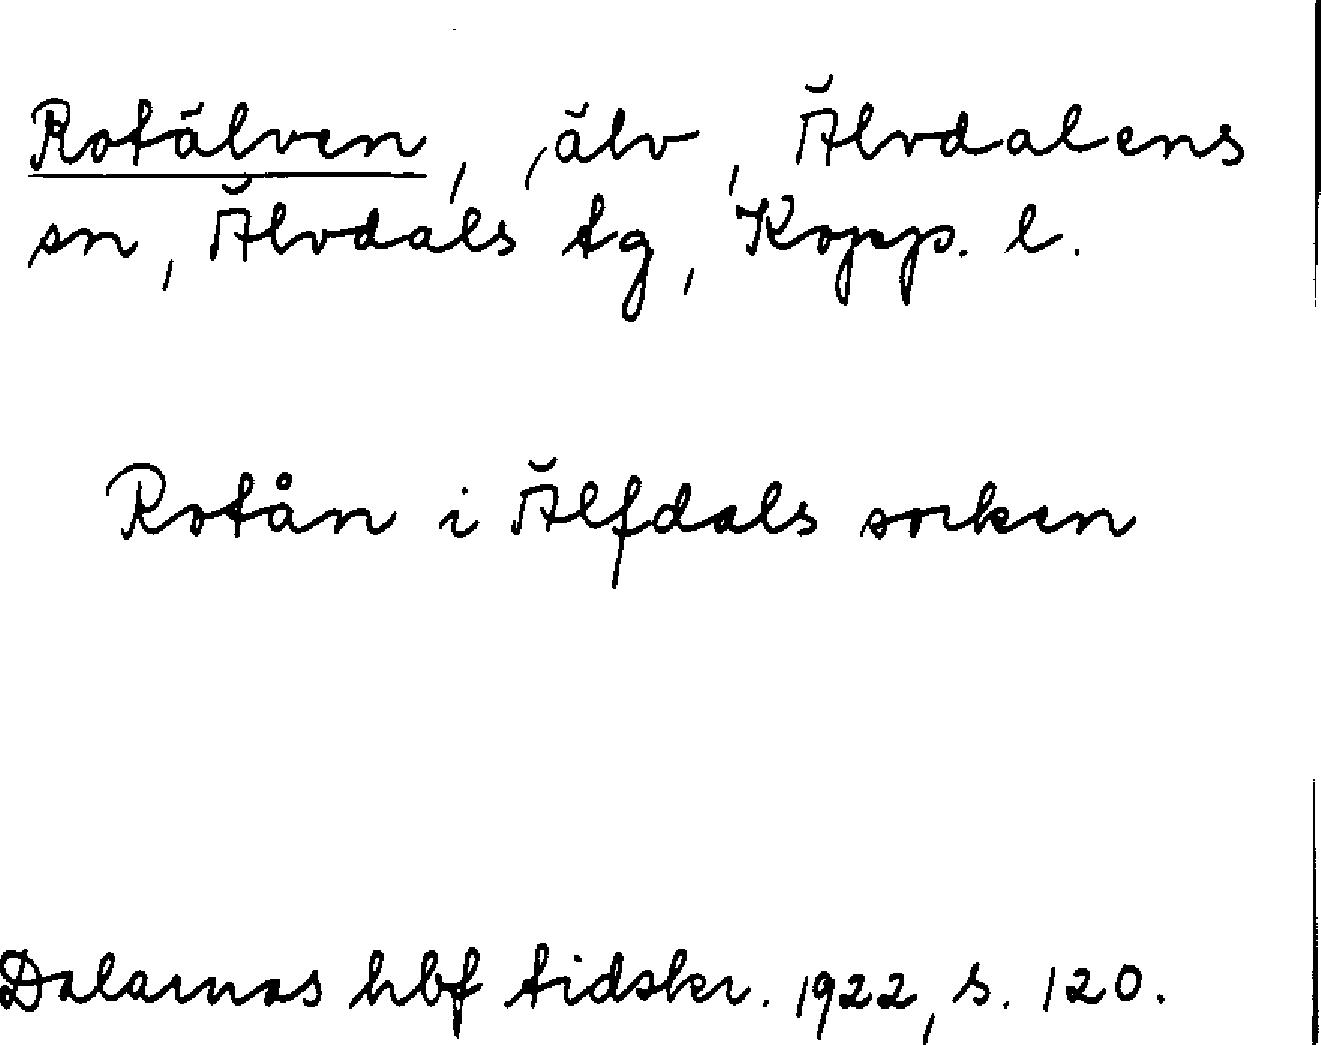 Rotälven, älv, Älvdalens
sn, Älvdals tg, Kopp. l.
Rotån i Älfdals socken
Dalarnas hbf tidskr. 1922, s. 120.